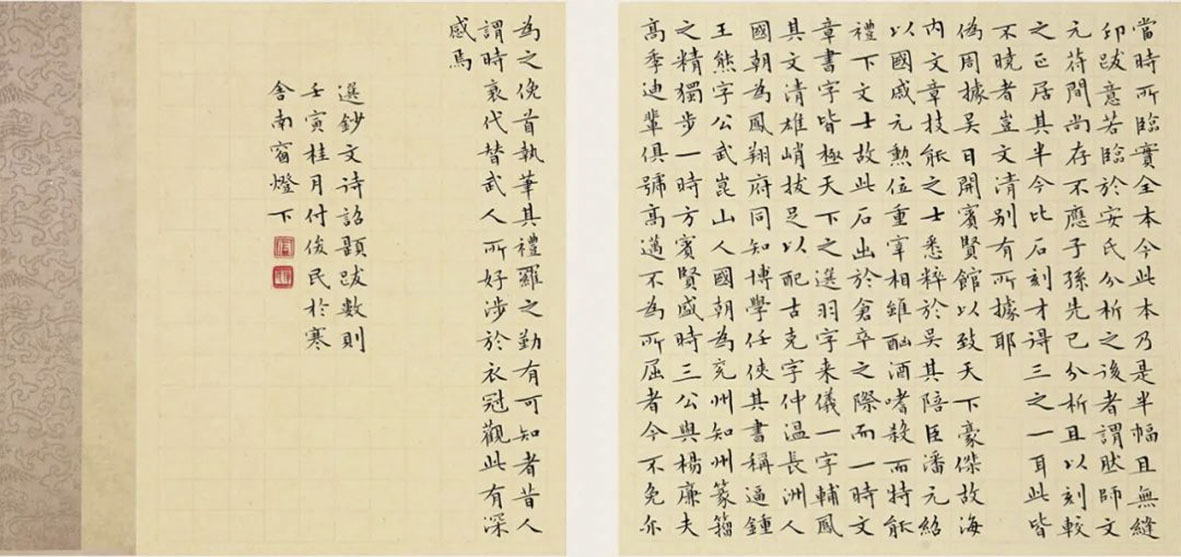 當時所臨實全本今此本乃是半幅且無縫
印跋意若臨於安氏分析之後者謂肰師文
元苻間尚存不應子孫先已分析且以刻較
之正居其半今比石刻才得三之一耳此皆
不曉者豈文清别有所據耶
偽周據吳日開賓賢館以致天下豪傑故海
内文章技能之士悉粹於吳其陪臣潘元紹
以國戚元勲位重宰相雖酗酒嗜殺而特能
禮下文士故此石出於倉卒之際而一時文
章書字皆極天下之選羽字来儀一字輔鳳
其文清雄峭拔足以配古克字仲温長洲人
國朝為鳳翔府同知博學任俠其書稱逼鍾
王熊字公武崑山人國朝為兖州知州篆籀
之精獨步一時方賓賢盛時三公與楊廉夫
高季迪輩俱號高邁不為所屈者今不免尔
為之俛首執筆其禮羅之勤有可知者昔人
謂時衰代替武人所好涉於衣冠觀此有深
感焉
選鈔文诗詔題跋数則
壬寅桂月付俊民於寒
舍南窗燈下